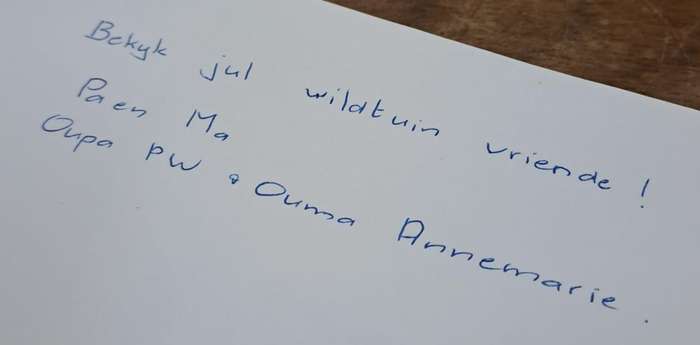 Bekyk jul wildtuin vriende!
Pa en Ma
Oupa PW & Ouma Annemarie.